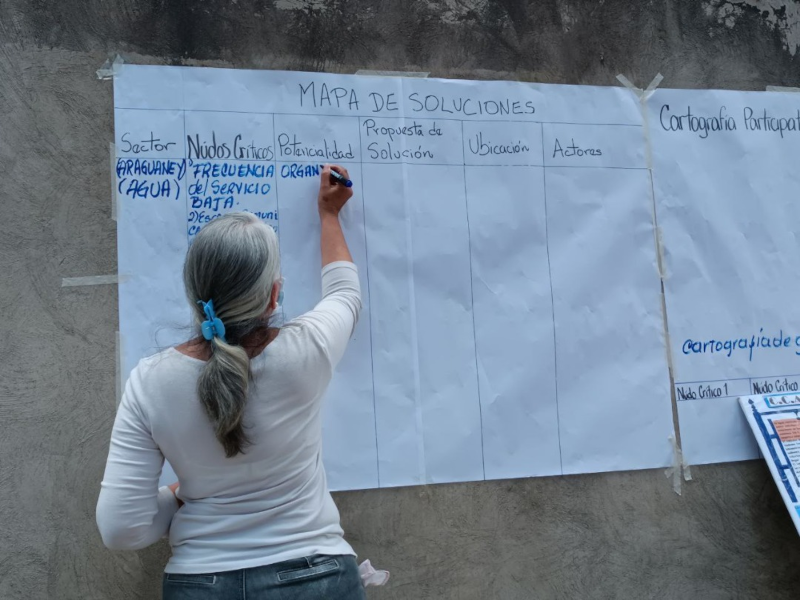 MAPA DE SOLUCIONES
Sector
Nudos Críticos
Potencialidad
Propuesta de
Solución
Ubicación
Actores
ARAGUANEY
(AGUA)
FRECUENCIA
de/ SERVICIO
BAJA.
ORGAN
Cartografía Participat
Cartografía de g
Nudo Crítico 1
Nudo Crítico